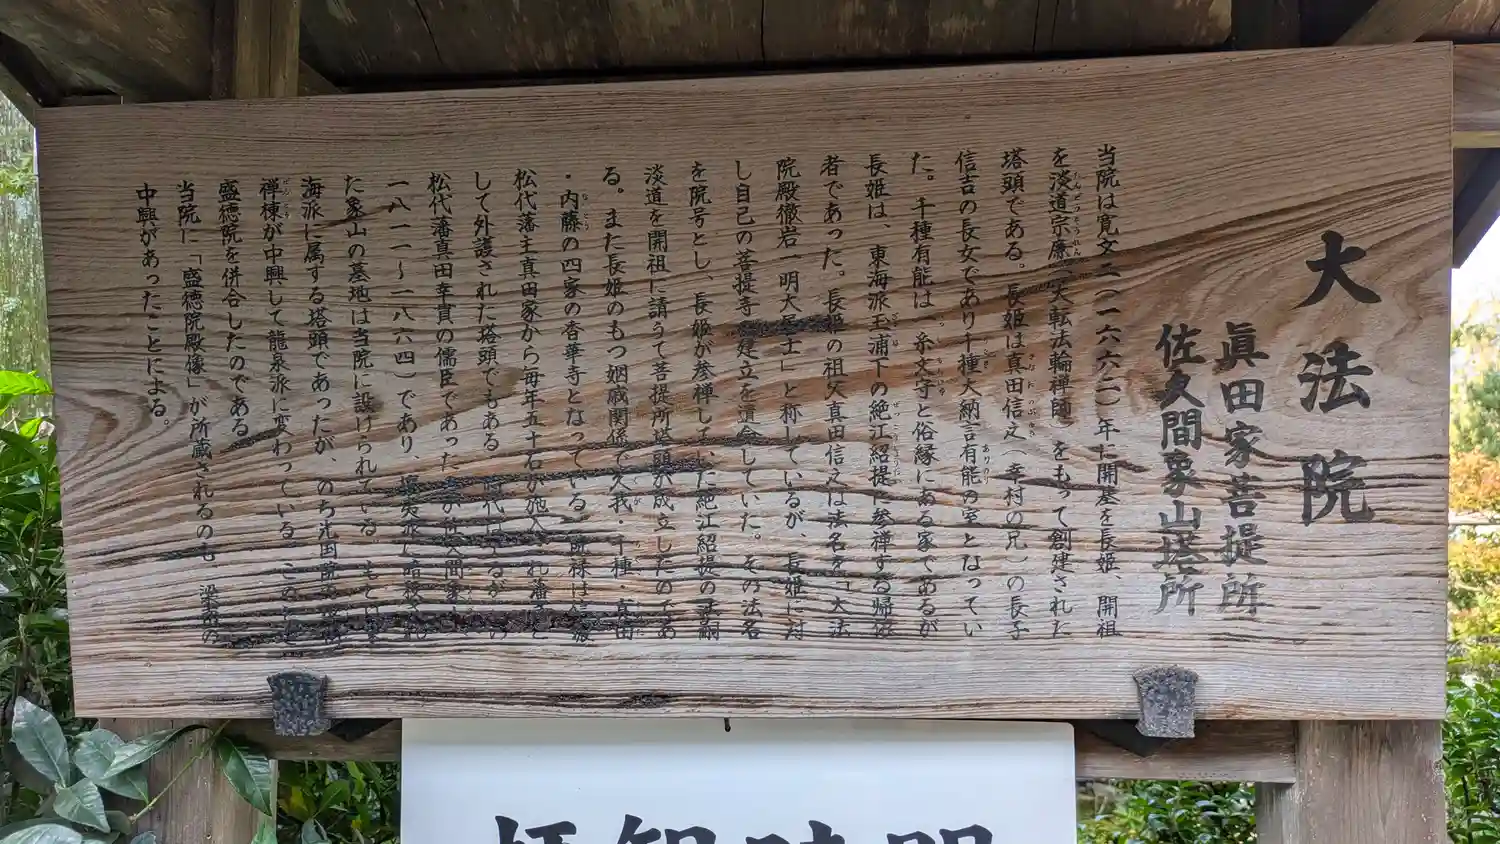 大法院
眞田家菩提所
佐久間象山塋所
当院は寛文二(一六六二)年に開基を長姫、開祖
を淡道宗廉(大転法輪禅師)をもって創建された
塔頭である。長姫は真田信之(幸村の兄)の長子
信吉の長女であり千種大納言有能の室となってい
た。千種有能は、糸文守と俗縁にある家であるが
長姫は、東海派玉浦下の絶江紹提に参禅する帰依
者であった。長姫の祖父真田信之は法名を「大法
院殿徹岩一明大居士」と称しているが、長姫に対
し自己の菩提寺の建立を遺命していた。その法名
を院号とし、長姫が参禅していた絶江紹提の法嗣
淡道を開祖に請うて菩提所塔頭が成立したのであ
る。また長姫のもつ姻戚関係で久我・千種・真田
・内藤の四家の香華寺となっている。院禄は信後
松代藩主真田家から毎年五十石が施入され藩主と
して外護された塔頭でもある。時代は下るが
松代藩真田幸貫の儒臣であった佐久間象山
一八一一〜一八六四)であり、攘夷派に暗殺され
た象山の墓地は当院に設けられている。もと東
海派に属する塔頭であったが、のち光国院の
禅棟が中興して龍泉派に変わっている。このとき
盛徳院を併合したのである。
当院に「盛徳院殿像」が所蔵されるのも、梁南の
中興があったことによる。